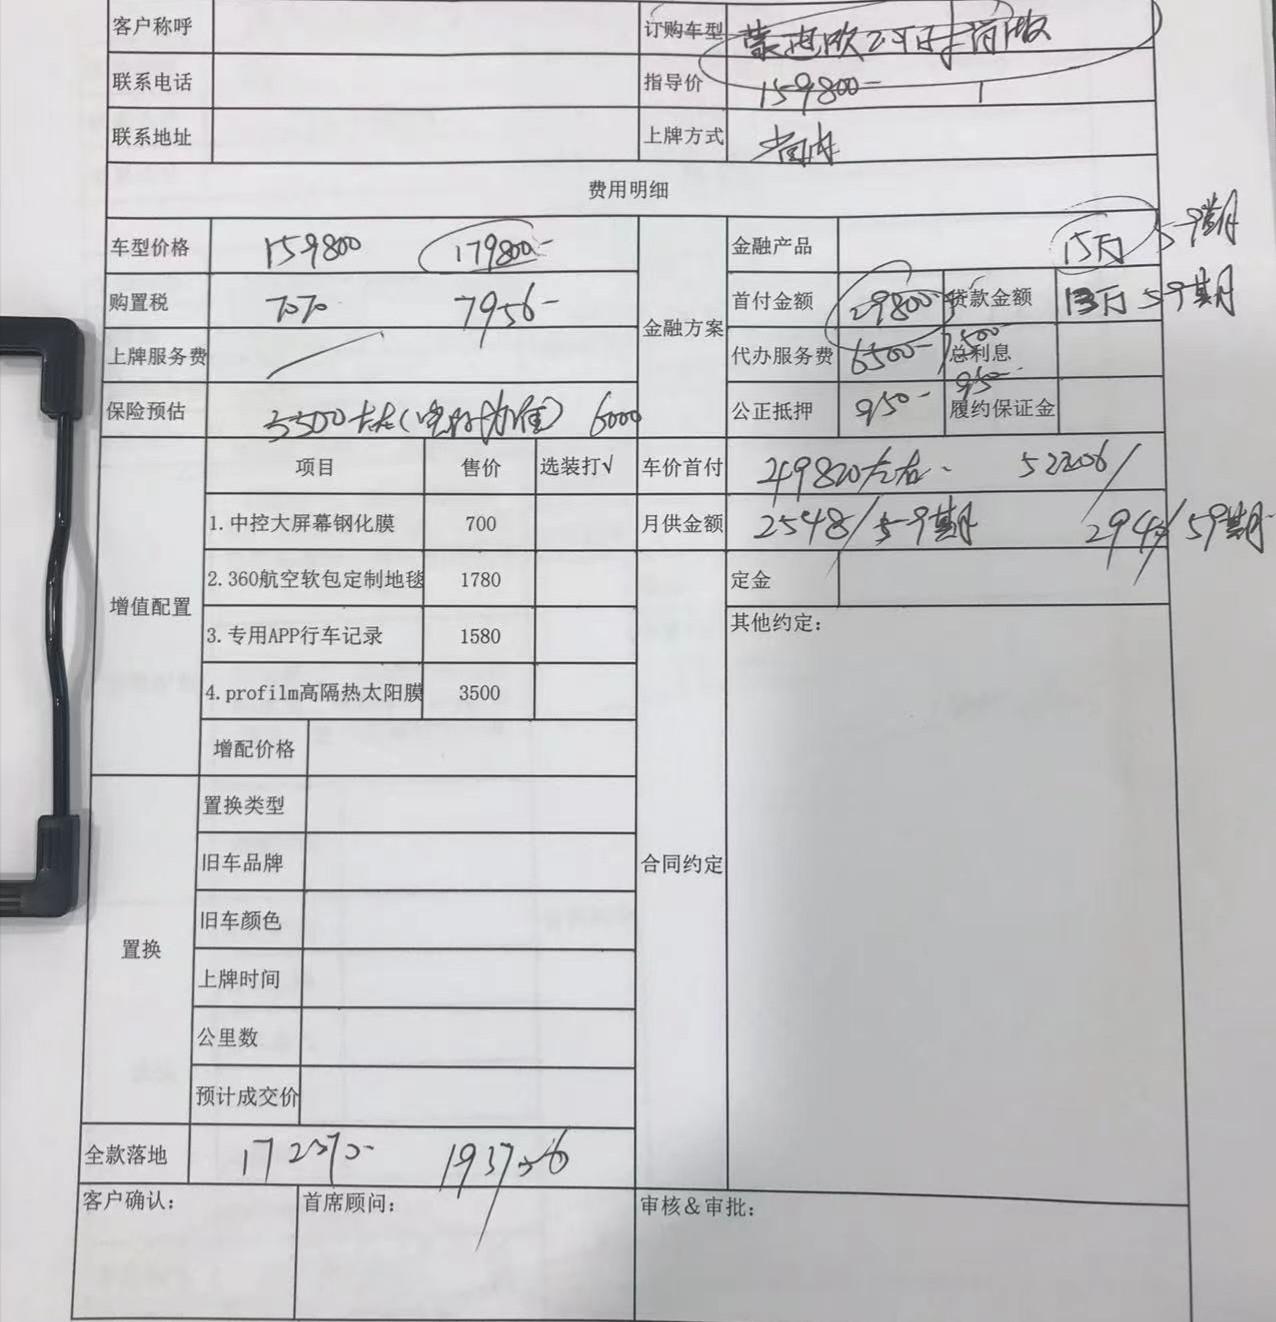 客户称呼 订购车型 蒙迪欧
联系电话 指导价 159800-
联系地址 上牌方式 省内
费用明细
车型价格 159800 179800- 金融方案 金融产品 15万 59期
购置税 7070 7956- 首付金额 29800- 贷款金额 13万 59期
上牌服务费 代办服务费 6500- 7500- 总利息
保险预估 5500左右(实时为准) 6000 公正抵押 950- 950- 履约保证金
增值配置 项目 售价 选装打√ 车价首付 49820左右、 52206/
1.中控大屏幕钢化膜 700 月供金额 2548/59期 294 /59期
2.360航空软包定制地毯 1780 定金
3.专用APP行车记录 1580 合同约定 其他约定：
4.profilm高隔热太阳膜 3500
增配价格
置换 置换类型
旧车品牌
旧车颜色
上牌时间
公里数
预计成交价
全款落地 172370- 193756
客户确认： 首席顾问： 审核&审批：